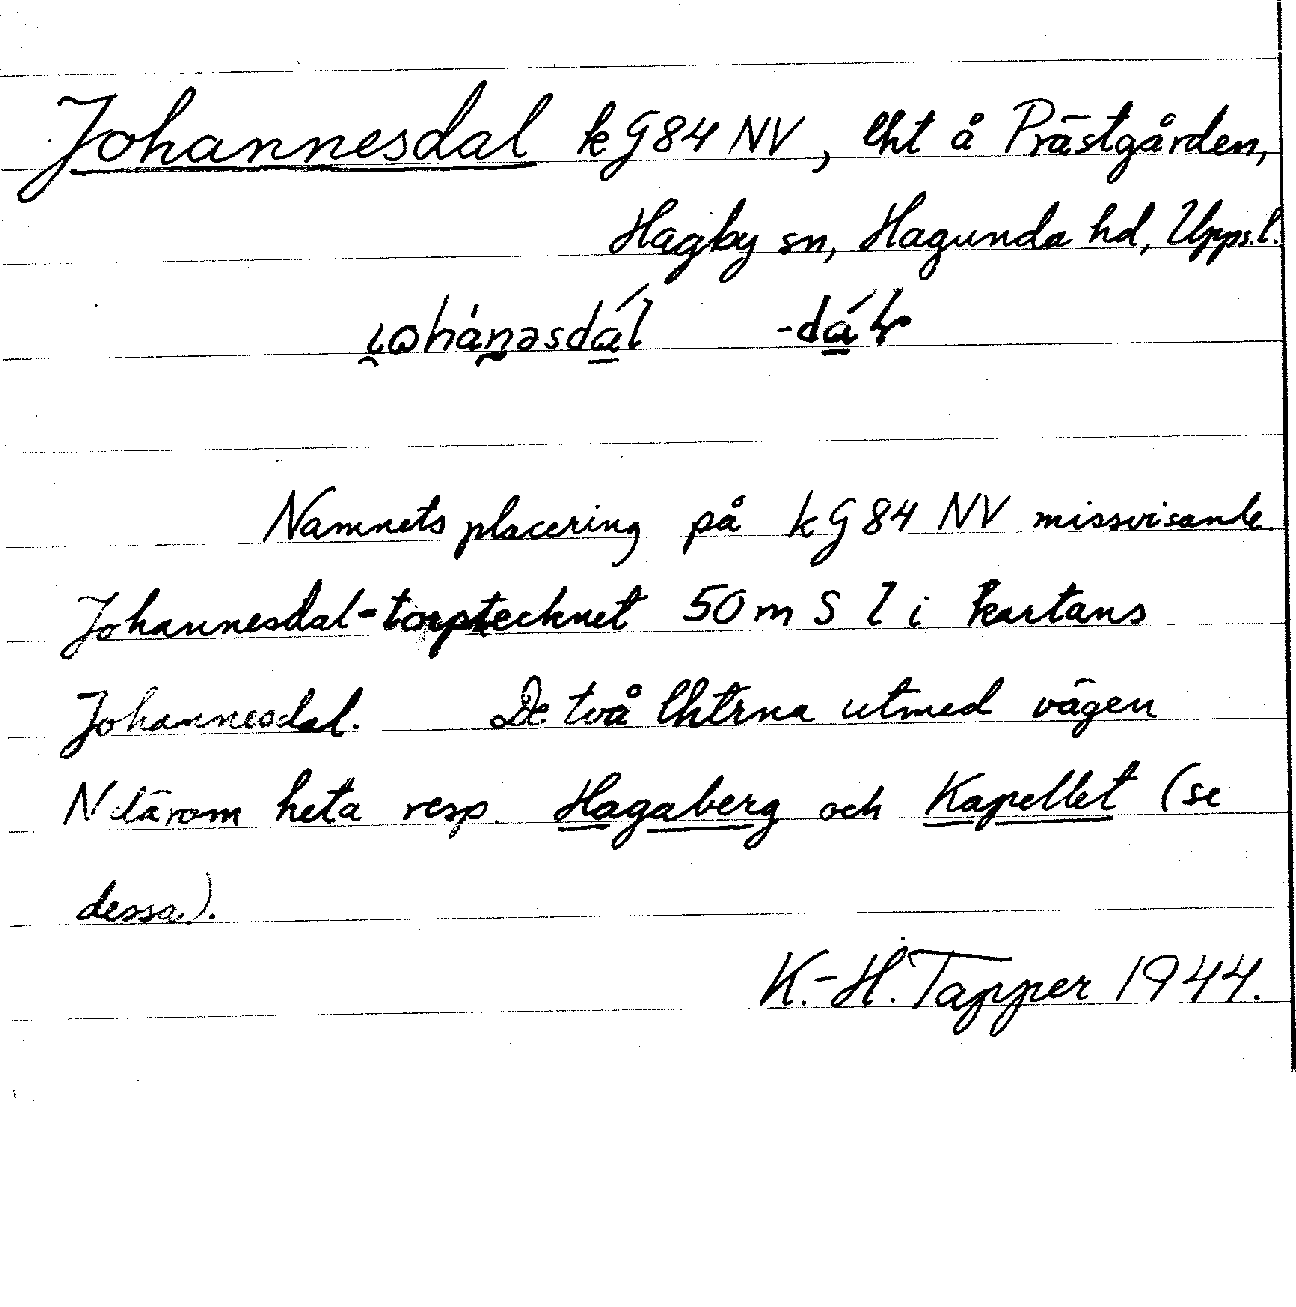 Johannesdal kG84 NV, lht å Prästgården,
Hagby sn, Hagunda hd, Upps.l.
-dá
Namnets placering på kG84 NV missvisande
Johannesdal-torptecknet 50 m S l i kartans
Johannesdal. De två lhtrna utmed vägen
N därom heta resp. Hagaberg och Kapellet (se
dessa).
K.-H. Tapper 1944.